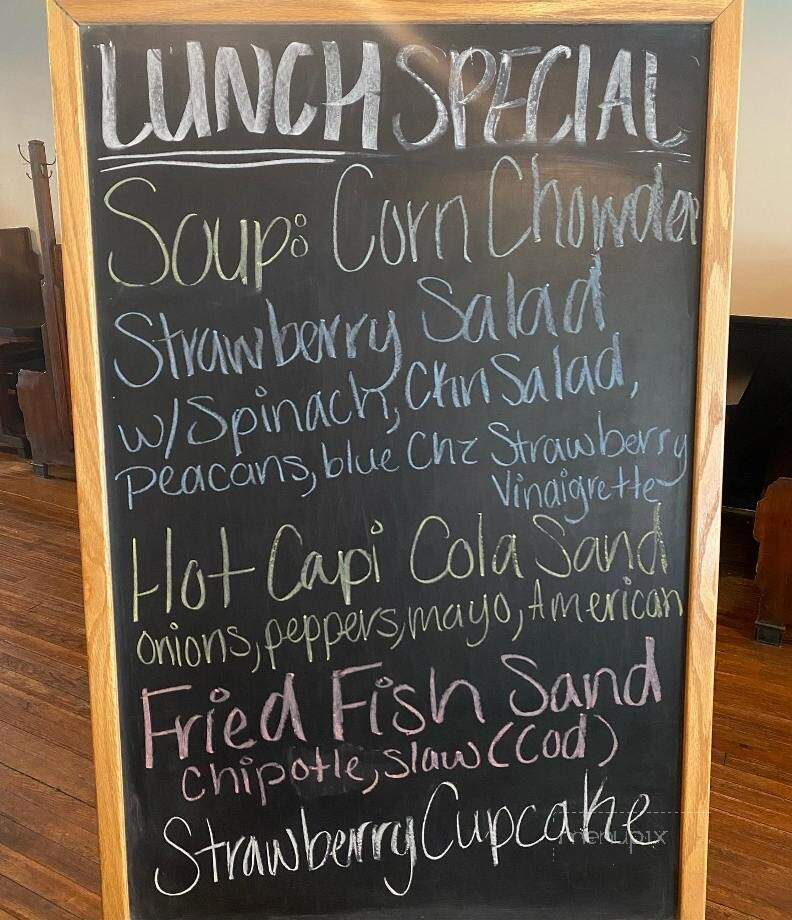 LUNCH SPECIAL
Soup: Corn Chowder
Strawberry Salad
w/Spinach, Ckn Salad,
peacans, blue Chz Strawberry
Vinaigrette
Hot Capi Cola Sand
onions, peppers, mayo, American
Fried Fish Sand
chipotle, slaw (Cod)
Strawberry Cupcake
menupix